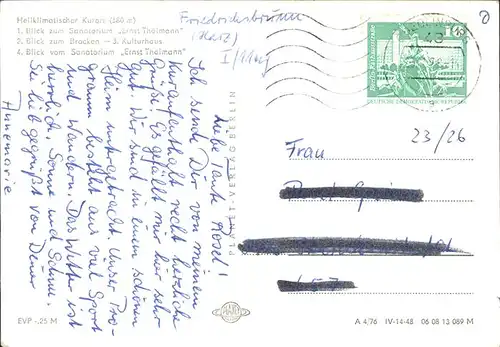 Heilklimatischer Kurort (580 m)
1. Blick zum Sanatorium „Ernst Thälmann"
2. Blick zum Brocken — 3. Kulturhaus
4. Blick vom Sanatorium „Ernst Thälmann"
Friedrichsbrunn
(Harz)
Liebe Tante Rosel!
Ich sende Dir von meinem
Kuraufenthalt recht herzliche
Grüße. Es gefällt mir hier sehr
gut. Wir sind in einem schönen
Heim untergebracht. Unser Pro-
gramm besteht aus viel Sport
und Wandern. Das Wetter ist
herrlich, Sonne und Schnee.
Sei lieb gegrüßt von Deiner
Annemarie
PLANET-VERLAG BERLIN
10
Berlin, Rathausstraße
DEUTSCHE DEMOKRATISCHE REPUBLIK
23/26
Frau
PLANET
EVP -,25 M
A 4/76 IV-14-48 06 08 13 089 M